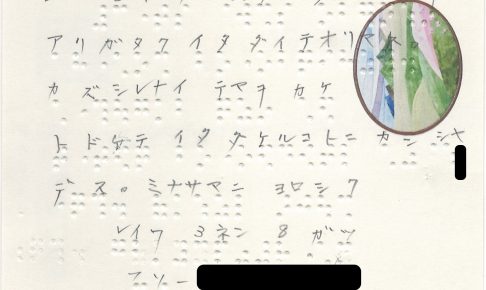 アリガタク イタダイテオリマス。
カズシレナイ テマヲ カケ
トドケテ イタダケルコトニ カンシャ
デス。ミナサマニ ヨロシク
レイワ 3ネン 8ガツ